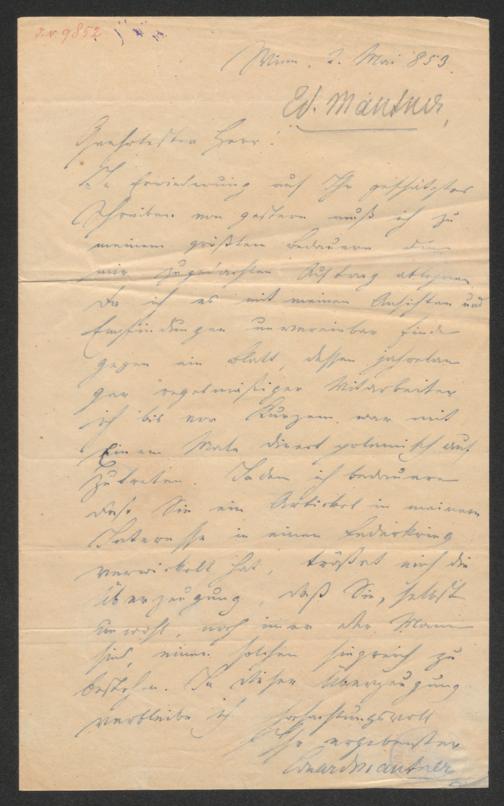 J.N. 9852
Wien. 2. Mai 853.
Ed. Mautner,
Geehrtester Herr!
In Erwiederung auf Ihr geschätztes
Schreiben von gestern muß ich zu
meinem größten Bedauern den
mir zugedachten Antrag ablehnen
Da ich es mit meinen Ansichten und
Empfindungen unvereinbar finde
gegen ein Blatt, dessen jahrelan
ger regelmäßiger Mitarbeiter
ich bis vor Kurzem war mit
Einem Male direct polemisch auf
zutreten. Indem ich bedauere
daß Sie ein Artickel in meinem
Interesse in einen Federkrieg
verwickelt hat, tröstet mich die
Überzeugung, daß Sie, selbst
noch immer der Mann
sind, einen solchen siegreich zu
bestehen. In dieser Überzeugung
verbleibe ich hochachtungsvoll
Ihr ergebenster
Eduard Mautner